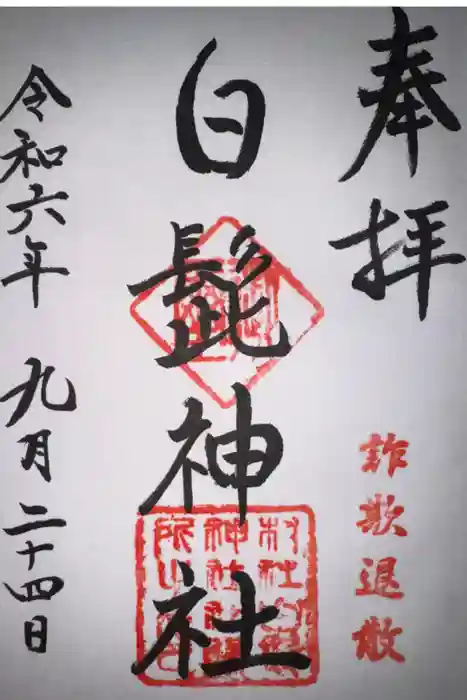 奉拝
詐欺退散
白髭神社
令和六年 九月二十四日